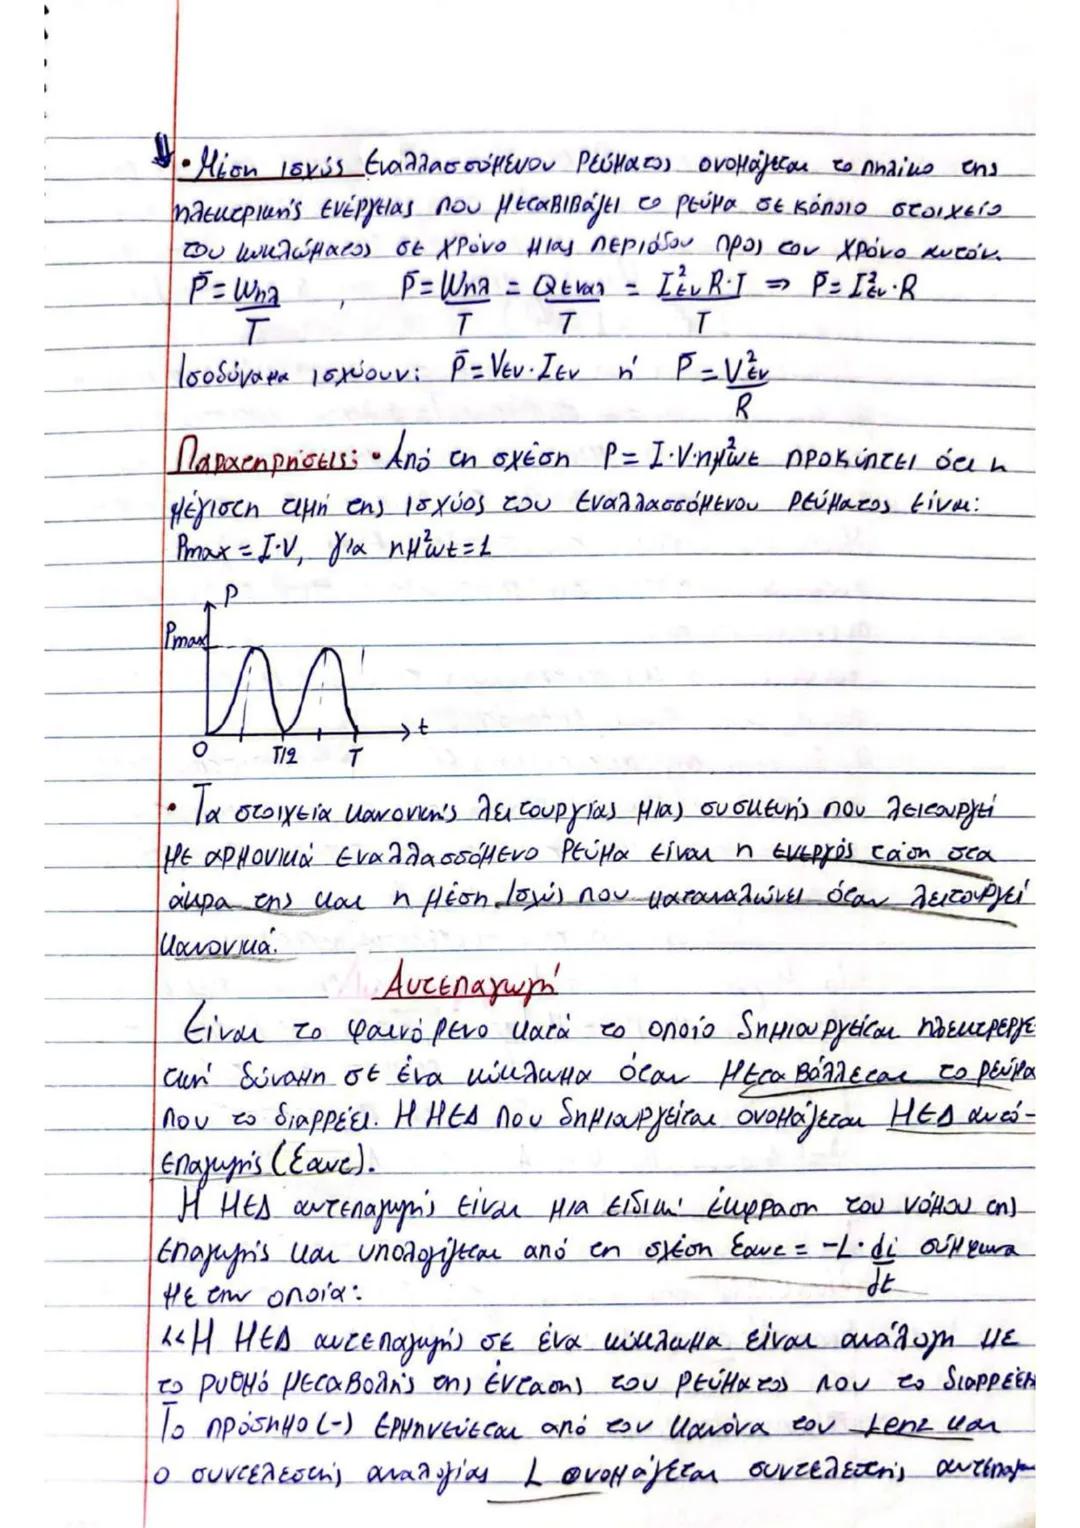 • Μέση ισχύς Εναλλασσόμενου Ρεύματος ονομάζεται το πηλίκο της
ηλεκτρικής ενέργειας που μεταβιβάζει το ρεύμα σε κάποιο στοιχείο
του κυκλώματος σε χρόνο μιας περιόδου προς τον χρόνο αυτόν.
P̄ = Wηλ/T , P̄ = Wηλ/T = Qεναλ/T = I²εν R·T/T ⇒ P̄ = I²εν·R
Ισοδύναμα ισχύουν: P̄ = Vεν·Iεν ή P̄ = V²εν/R
Παρατηρήσεις: • Από τη σχέση P = I·V·ημ²ωt προκύπτει ότι η
μέγιστη τιμή της ισχύος του εναλλασσόμενου ρεύματος είναι:
Pmax = I·V, για ημ²ωt = 1
P
Pmax
t
0 T/2 T
• Τα στοιχεία κανονικής λειτουργίας μιας συσκευής που λειτουργεί
με αρμονικά εναλλασσόμενο ρεύμα είναι η ενεργός τάση στα
άκρα της και η μέση ισχύς που καταναλώνει όταν λειτουργεί
κανονικά.
Αυτεπαγωγή
Είναι το φαινόμενο κατά το οποίο δημιουργείται ηλεκτρεργε
τική δύναμη σε ένα κύκλωμα όταν μεταβάλλεται το ρεύμα
που το διαρρέει. Η ΗΕΔ που δημιουργείται ονομάζεται ΗΕΔ αυτό-
επαγωγής (Εαυτ).
Η ΗΕΔ αυτεπαγωγής είναι μια ειδική έκφραση του νόμου της
επαγωγής και υπολογίζεται από τη σχέση Εαυτ = -L·di/dt σύμφωνα
με την οποία:
<<Η ΗΕΔ αυτεπαγωγής σε ένα κύκλωμα είναι ανάλογη με
το ρυθμό μεταβολής της έντασης του ρεύματος που το διαρρέει
Το πρόσημο (-) ερμηνεύεται από τον κανόνα του Lenz και
ο συντελεστής αναλογίας L ονομάζεται συντελεστής αυτεπαγω